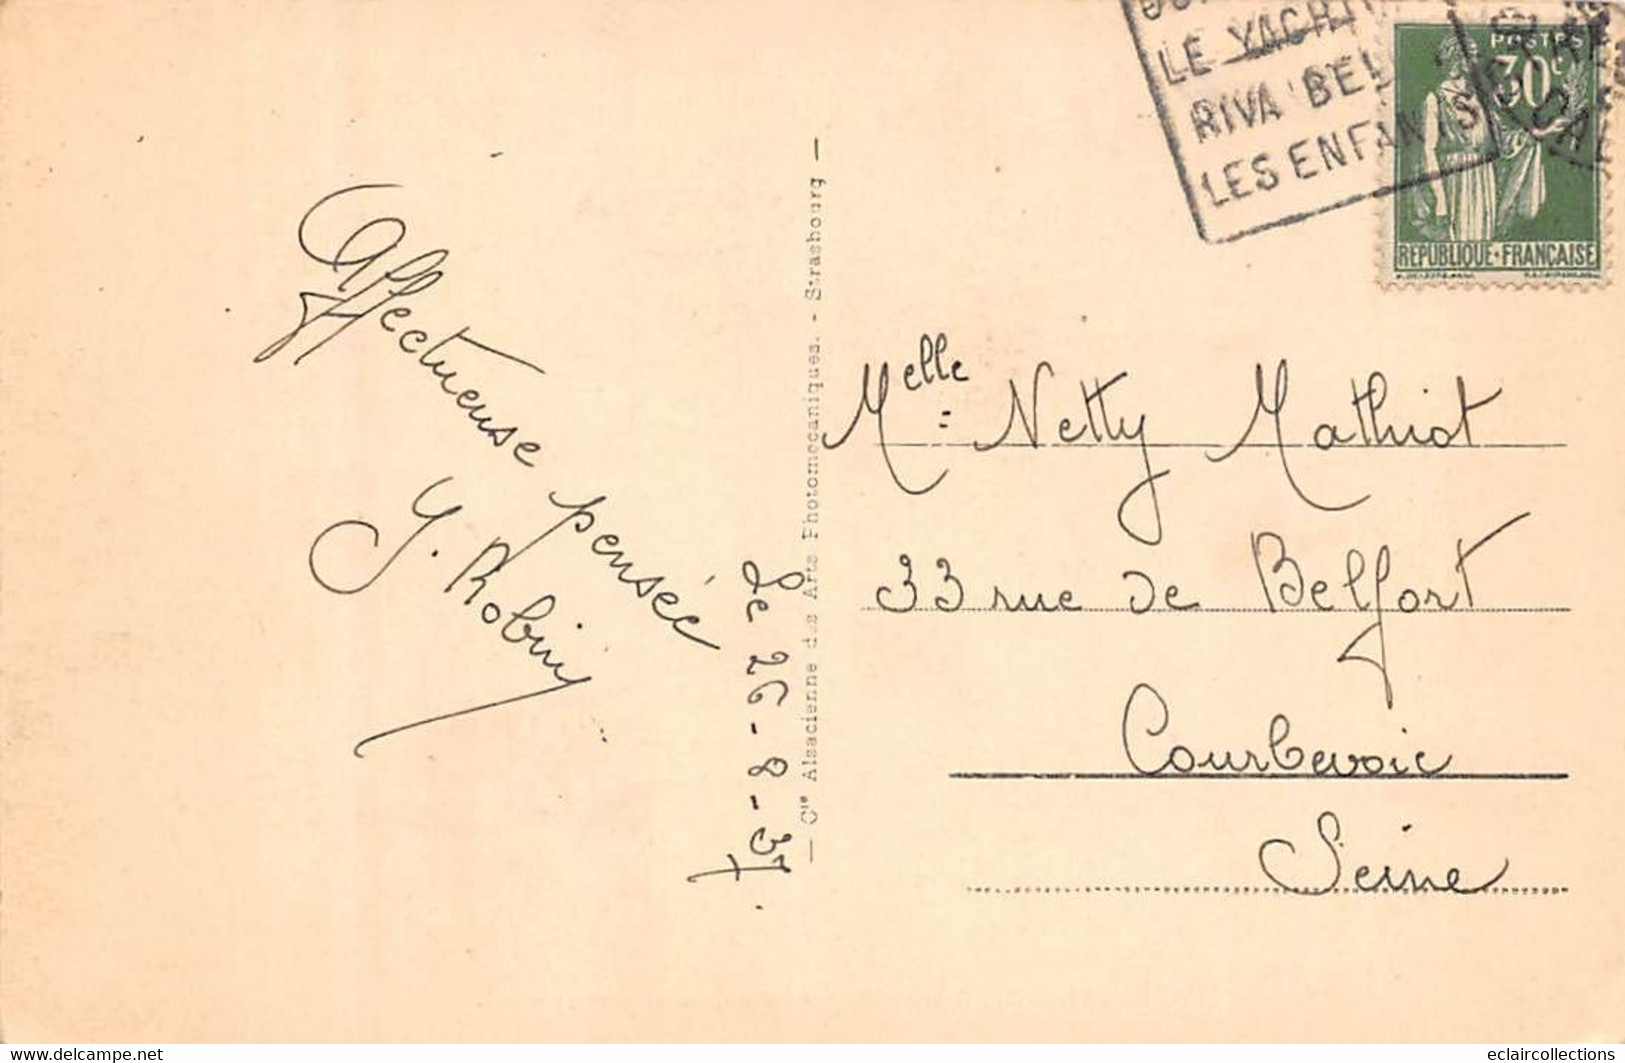 Affectueuse pensée
G. Robin
Le 26-8-37.
— Cie Alsacienne des Arts Photomécaniques. - Strasbourg —
LE YACHT
RIVA BEL
LES ENFANTS
POSTES
30c
REPUBLIQUE·FRANÇAISE
Melle: Netty Mathiot
33 rue de Belfort
Courbevoie
Seine
www.delcampe.net
eclaircollections